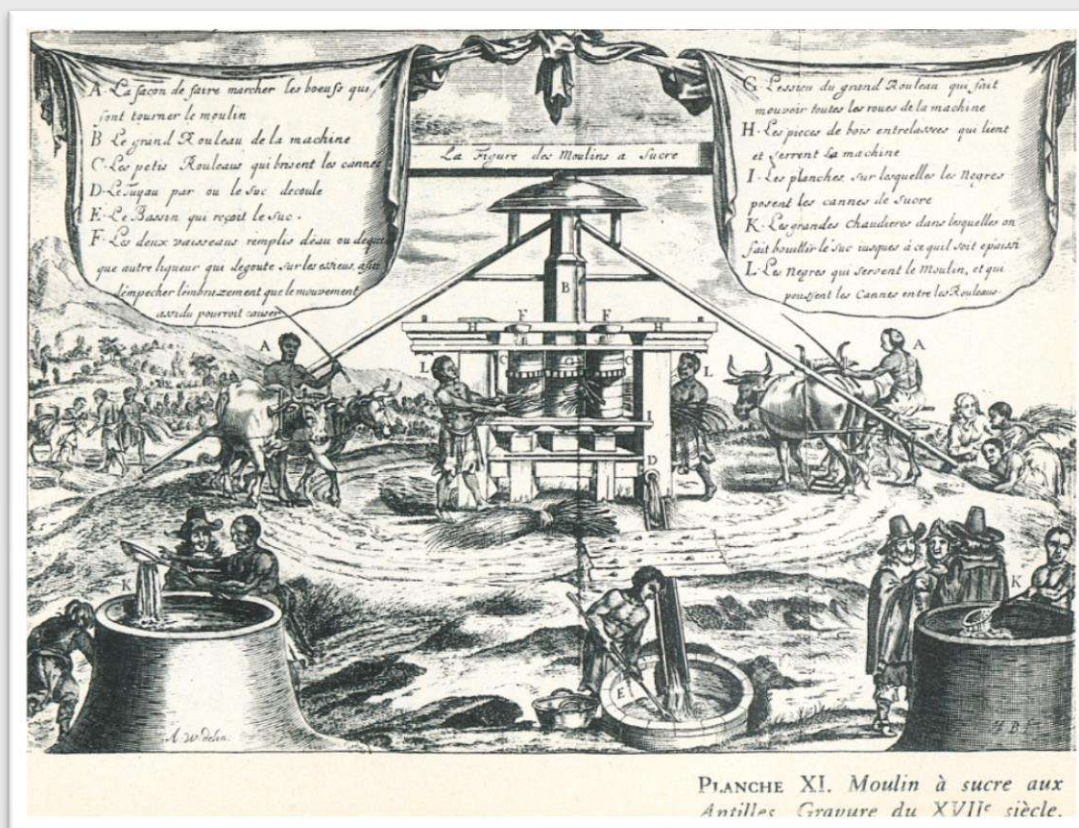 A. La façon de faire marcher les boeufs qui
font tourner le moulin
B Le grand Rouleau de la machine
C. Les petis Rouleaus qui brisent les cannes
D. Le Tuyau par ou le suc decoule
E. Le Bassin qui reçoit le suc.
F. Les deux vaisseaus remplis d'eau ou de
que autre liqueur qui degoute sur les essieus, afin
d'empecher l'embrazement que le mouvement
assidu pourroit causer
La Figure des Moulins a Sucre
G. L'essieu du grand Rouleau qui fait
mouvoir toutes les roues de la machine
H. Les pieces de bois entrelassees qui lient
et serrent La machine
I. Les planches sur lesquelles les Negres
posent les cannes de sucre
K. Les grandes chaudieres dans lesquelles on
fait bouillir le suc iusques à ce quil soit epaissi
L. Les Negres qui servent le Moulin, et qui
poussent les Cannes entre les Rouleaus.
B
H F F H
A A
L C G C L
I
D
K K
E
A W delin.
PLANCHE XI. Moulin à sucre aux
Antilles. Gravure du XVIIe siècle.